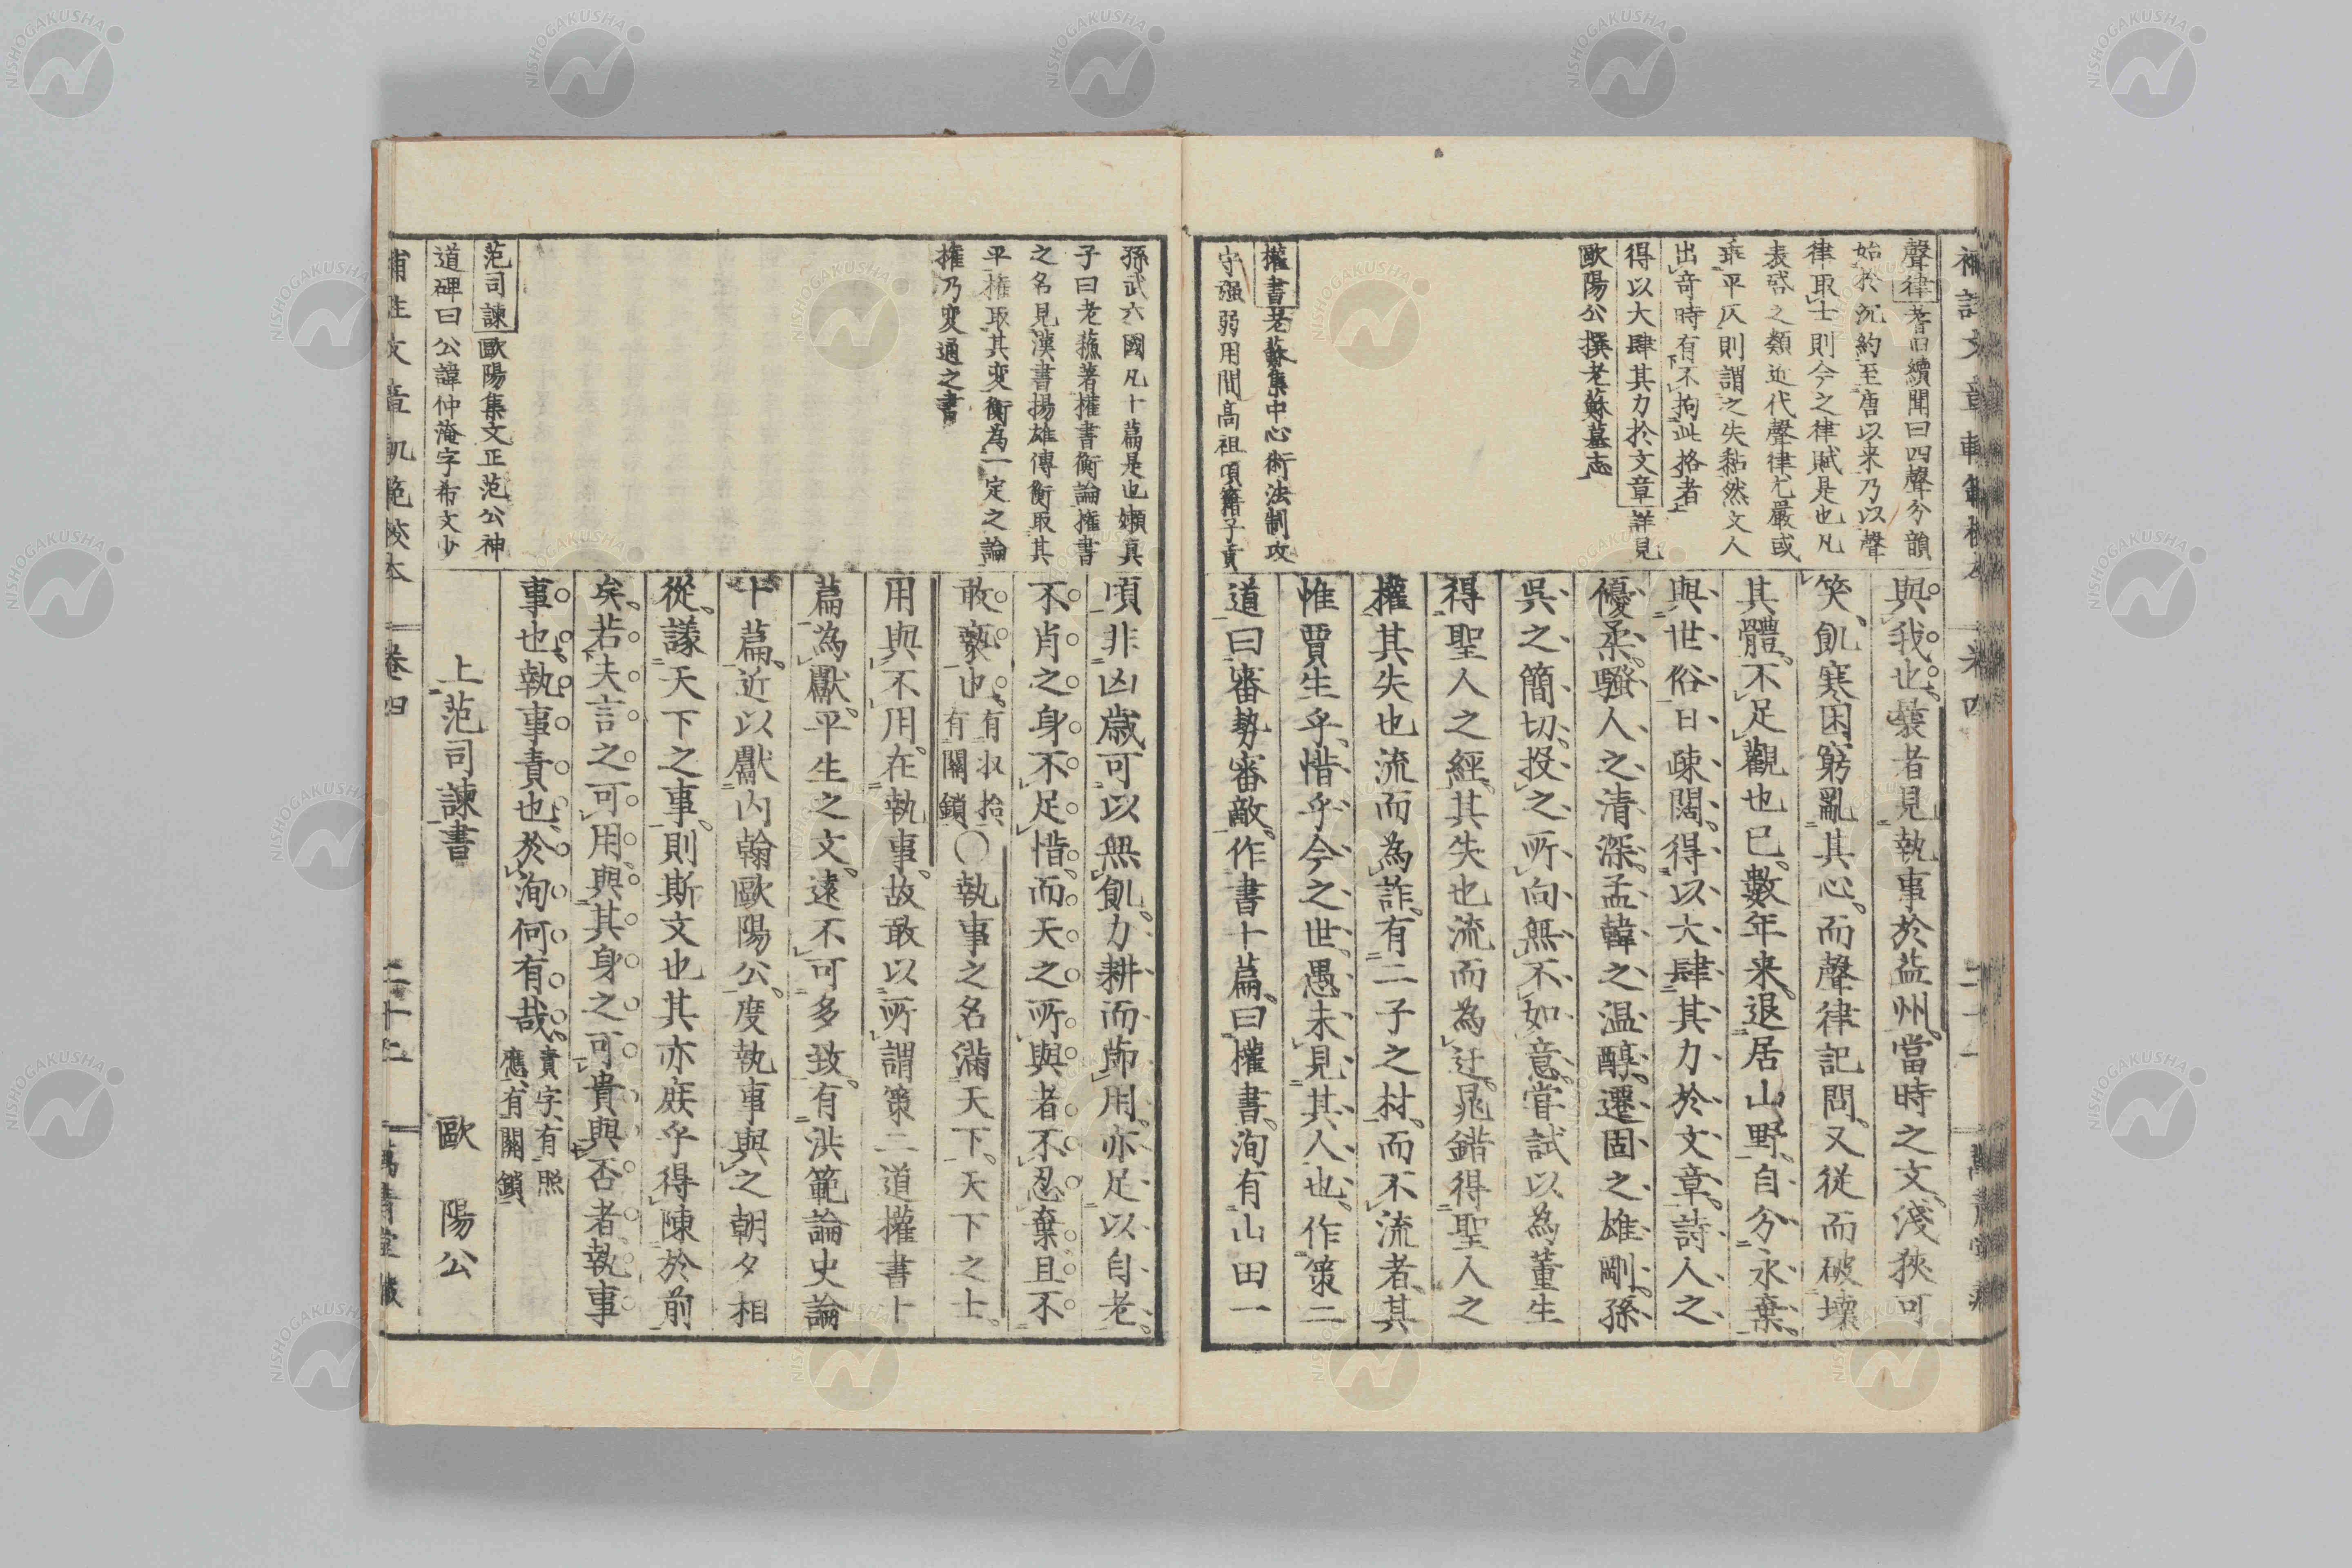 聲律耆旧續聞曰四聲分韻
始於沉約至唐以来乃以聲
律取士則今之律賦是也凡
表啓之類近代聲律尤嚴或
乖平仄則謂之失黏然文人
出奇時有不拘此格者
得以大肆其力於文章詳見
歐陽公撰老蘇墓志
權書老蘇集中心術法制攻
守強弱用間高祖項籍子貢
與我也曩者見執事於益州當時之文淺狹可
笑飢寒困窮亂其心而聲律記問又從而破壊
其體不足觀也已數年来退居山野自分永棄
與世俗日疎闊得以大肆其力於文章詩人之
優柔騷人之清深孟韓之温醇遷固之雄剛孫
吳之簡切投之所向無不如意甞試以為董生
得聖人之經其失也流而為迂晁錯得聖人之
權其失也流而為詐有二子之材而不流者其
惟賈生乎惜乎今之世愚未見其人也作策二
道曰審勢審敵作書十篇曰權書洵有山田一
孫武六國凡十篇是也嬾真
子曰老蘓著權書衡論權書
之名見漢書揚雄傳衡取其
平權取其変衡為一定之論
權乃変通之書
范司諫歐陽集文正范公神
道碑曰公諱仲淹字希文少
頃非凶歳可以無飢力耕而節用亦足以自老
不肖之身不足惜而天之所與者不忍棄且不
敢褻也有収拾有關鎖〇執事之名滿天下天下之士
用與不用在執事故敢以所謂策二道權書十
篇為獻平生之文遠不可多致有洪範論史論
十篇近以獻内翰歐陽公度執事與之朝夕相
從議天下之事則斯文也其亦庶乎得陳於前
矣若夫言之可用與其身之可貴與否者執事
事也執事責也於洵何有哉責字有照應有關鎖
上范司諫書　歐陽公
補註文章軌範校本　卷四　二十七